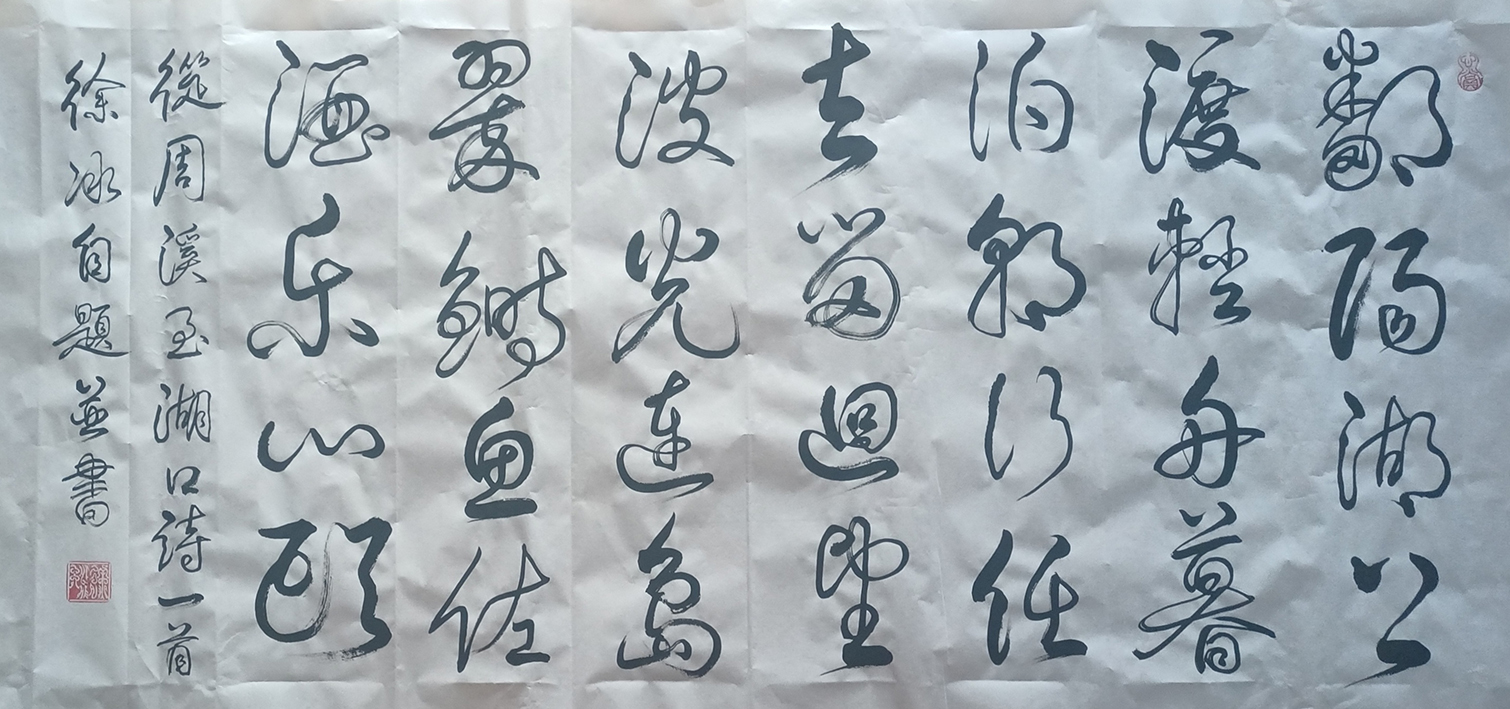 鄱陽湖上
渡輕舟暮
泊朝行任
去留迴望
波光連島
翠鰣魚佐
酒樂心頤
從周溪至湖口詩一首
徐冰自題並書